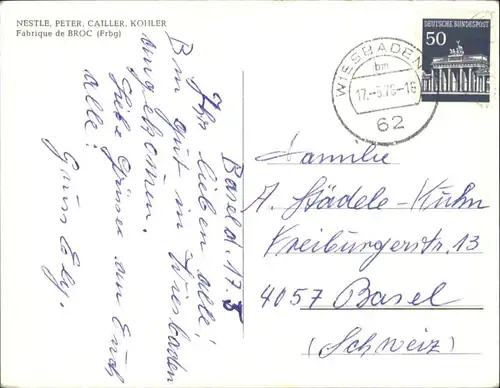 NESTLE, PETER, CAILLER, KOHLER
Fabrique de BROC (Frbg)
Basel d. 17. 5
Ihr lieben alle!
Bin gut in Wiesbaden
angekommen.
Liebe Grüsse an Euch
alle!
Gruss Ely.
DEUTSCHE BUNDESPOST
50
WIESBADEN
bm
62
Familie
A. Städele-Kuhn
Freiburgerstr. 13
4057 Basel
(Schweiz)